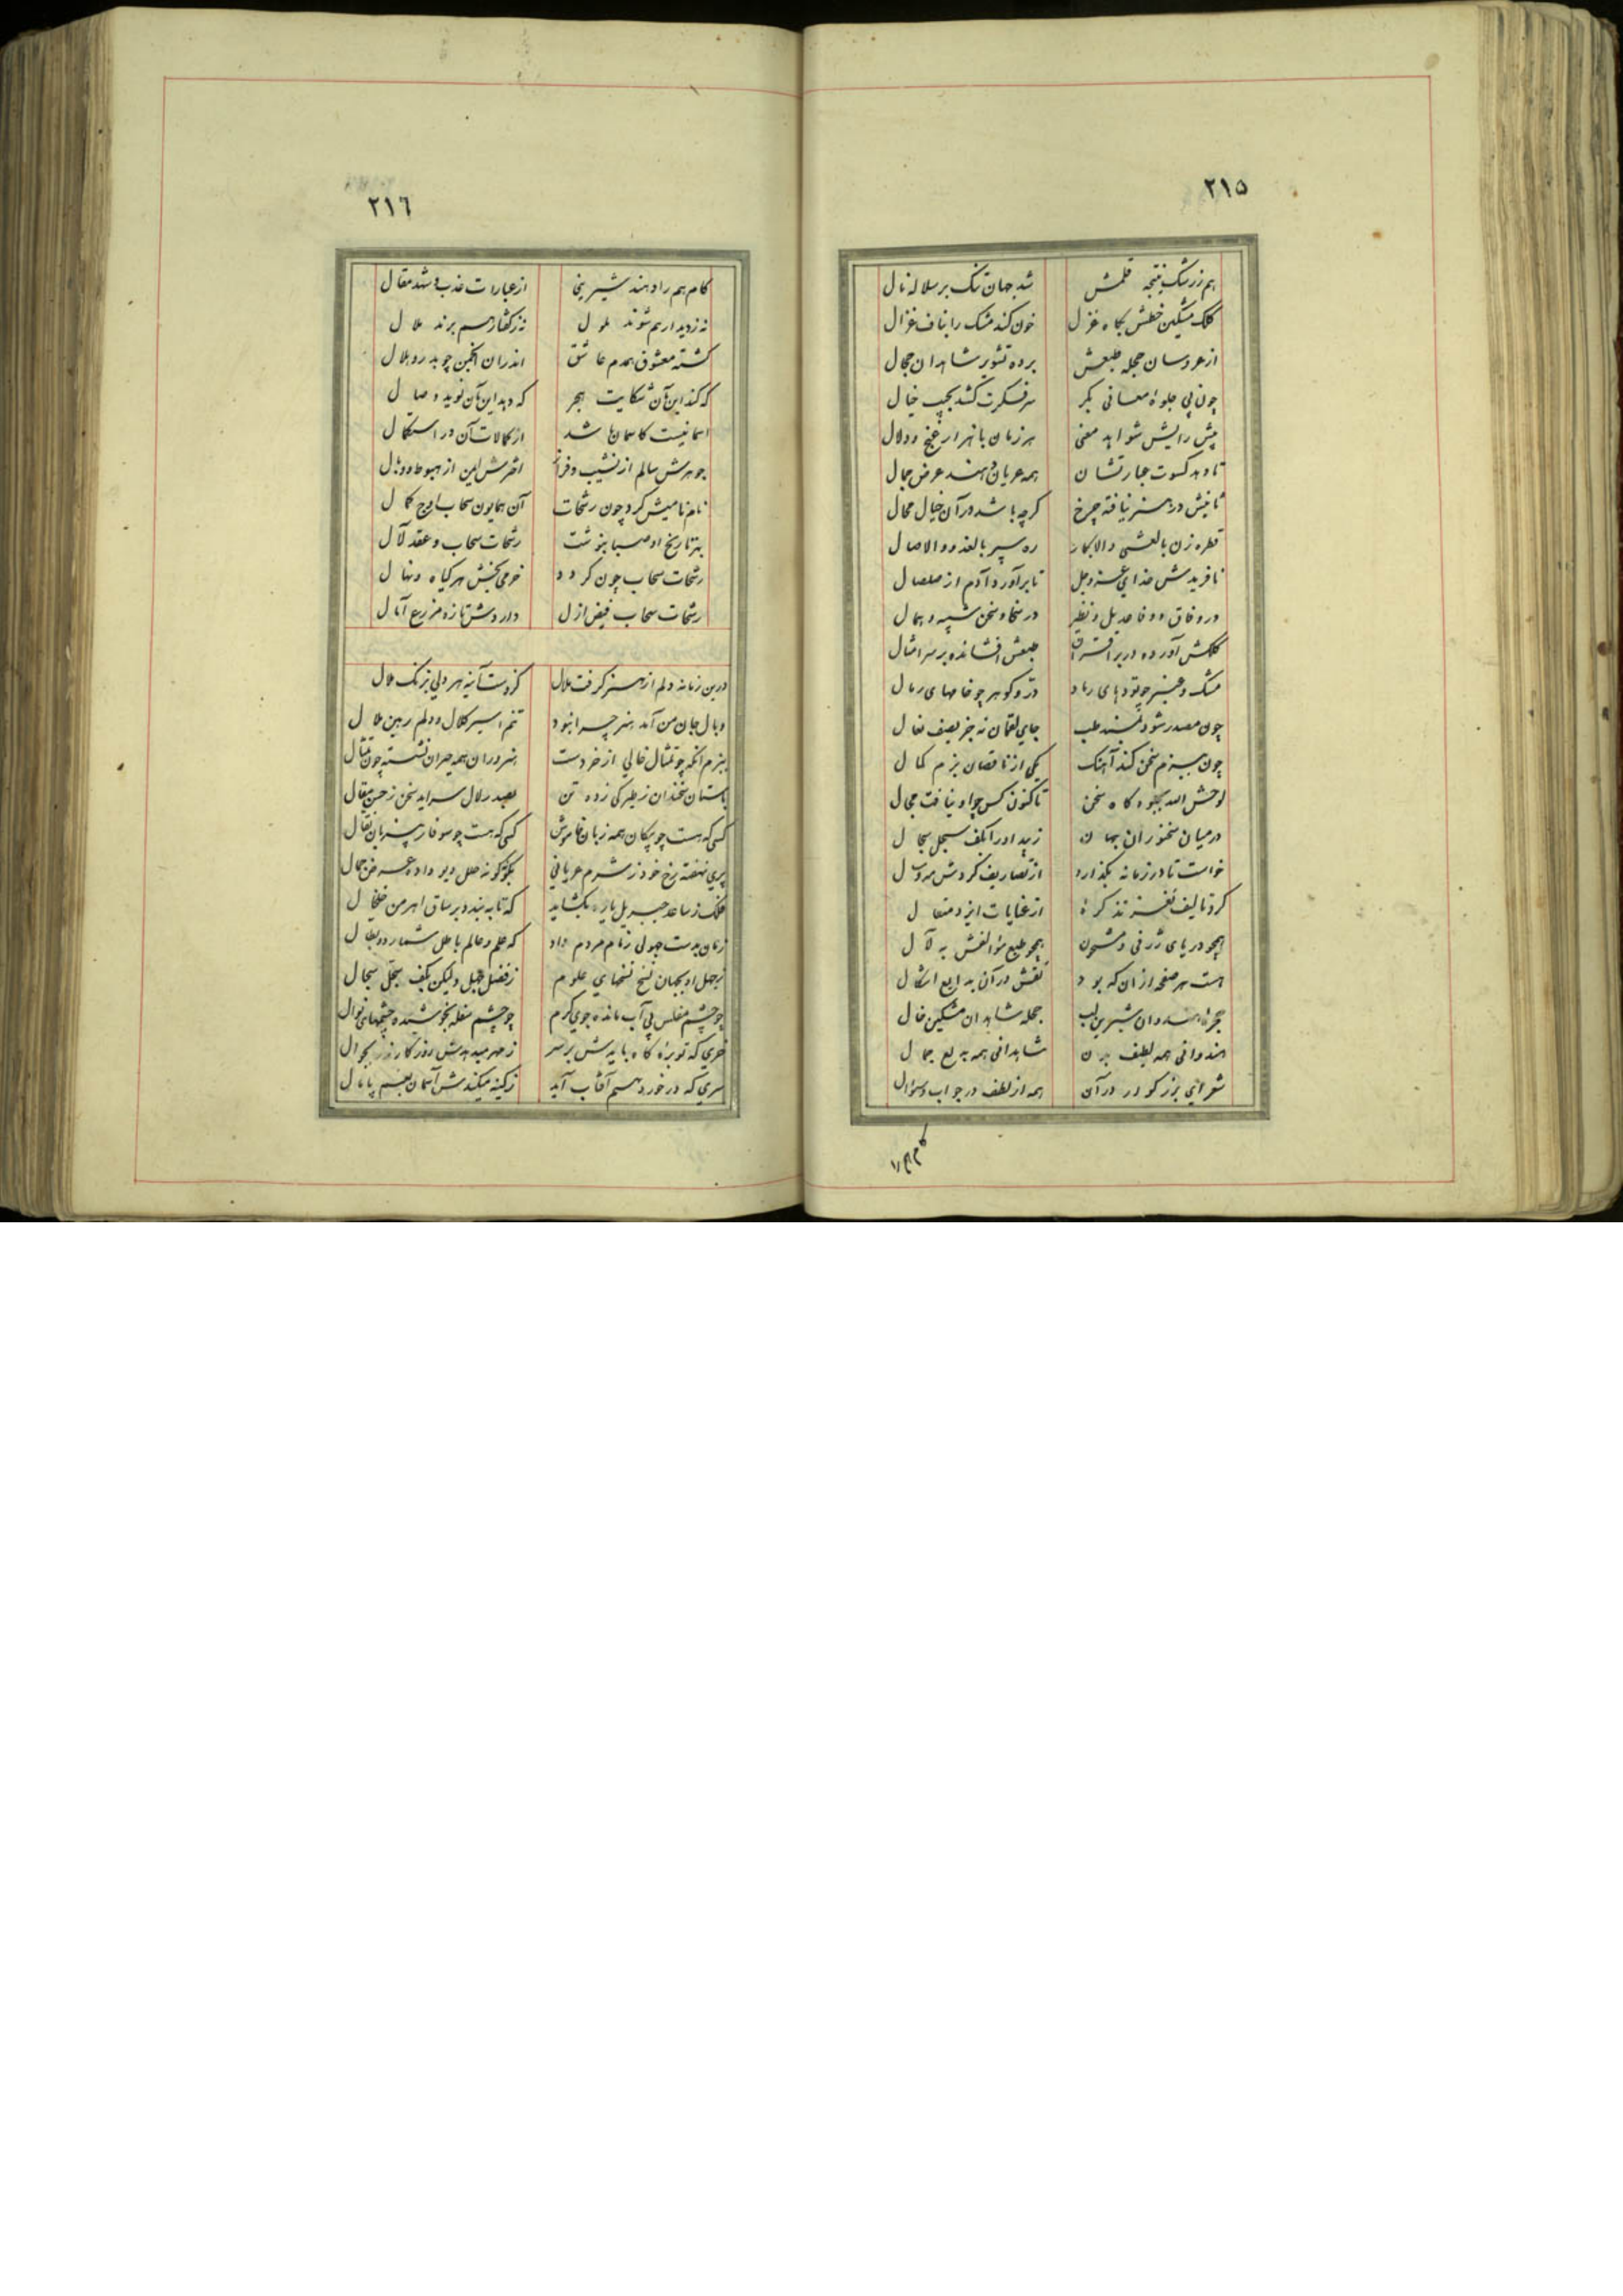 ٢١٥
هم ز رشک نتیجه قلمش شد جهان تنک بر سلاله نال
کلک مشکین خطش بگاه غزل خون کند مشک را بناف غزال
از عروسان حجله طبعش برده تشویر شاهدان حجال
چون پی جلوهٔ معانی بکر سر فکرت کشد بجیب خیال
پیش رایش شواهد معنی هر زمان با هزار غنج و دلال
تا دهد کسوت عبارتشان همه عریان دهند عرض جمال
ثانیش در هنر نیافته چرخ گرچه باشد در آن خیال محال
قطره زن بالعشی والابکار ره سپر بالغدو والاصال
نافریدش خدای عز و جل تا برآورد آدم از صلصال
در وفاق و وفا عدیل و نظیر در سخا و سخن شبیه و همال
کلکش آورده در بر اقران طبعش افشانده بر سر امثال
مشک و عنبر چو تودهای رماد در و گوهر چو خاصهای رمال
چون مصدر شود بمسند طب جای لقمان نه جز بصف نعال
چون ببزم سخن کند آهنگ یکی از ناقصان بزم کمال
لوحش الله بجلوه گاه سخن تاکنون کس چو او نیافت مجال
در میان سخنوران جهان زیبد او را بکف سجل سجال
خواست تا در زمانه بگذارد از تصاریف گردش مه و سال
کرد تالیف نغز تذکرهٔ از عنایات ایزد متعال
همچو دریای ژرفی و مشحون همچو طبع مؤالفش به لآل
هست هر صفحه از آن که بود نقش در آن بدایع اشکال
حجرهٔ هندوان شیرین لب حجلهٔ شاهدان مشکین خال
هندوانی همه لطیف بدن شاهدانی همه بدیع جمال
شعرای بزرگوار در آن همه از لطف در جواب و سؤال
٢١٦
کام هم را دهند شیرینی از عبارات عذب و شهد مقال
نه ز دیدار هم شوند ملول نه ز گفتار هم برند ملال
گشته معشوق همدم عاشق اندران انجمن چو بدر و هلال
که کند این بآن شکایت هجر که دهد این بآن نوید وصال
آسمانیست کاسمانها شد از کمالات آن در استکمال
جوهرش سالم از نشیب و فراز اخترش ایمن از هبوط و وبال
نام نامیش کرد چون رشحات آن همایون سحاب اوج کمال
بهر تاریخ او صبا بنوشت رشحات سحاب و عقد لآل
رشحات سحاب چون گردد خرمی بخش هر گیاه و نهال
رشحات سحاب فیض ازل دارد و شش تازه مزرع آمال
درین زمانه دلم از هنر گرفت ملال کزوست آینه هر دلی بزنگ ملال
وبال جان من آمد هنر چرا نبود تنم اسیر کلال و دلم رهین ملال
ببزم آنکه چو تمثال خالی از خردست هنروران همه حیران نشسته چون تمثال
باستان سخندان ز طیرگی زده تن بصدر لال سراید سخن ز حسن مقال
کسی که هست چو پیکان همه زبان خاموش کسی که هست چو سوفار هرزبان نقال
پری نهفته رخ خود ز شرم عریانی بگونه‌گونه حلل دیو داده عرض جمال
فلک ز ساعد جبریل یاره بگشاید که تا به بندد بر ساق اهرمن خلخال
زمان بدست جهولی زمام مردم داد که علم و عالم باطل شمارد و بطال
ز جهل او بجهان نسخ نسخهای علوم ز فضل جهل و لیکن بکف سجل سجال
چو چشم مفلس بی آب مانده جوی کرم چو چشم سفله بخوشیده چشمهای نوال
خری که توبرهٔ کاه بایدش بر سر ز مهر میدهدش روزگار زر بجوال
سری که در خور دیهیم آفتاب آید ز کینه میکندش آسمان بغم پامال
کام هم را